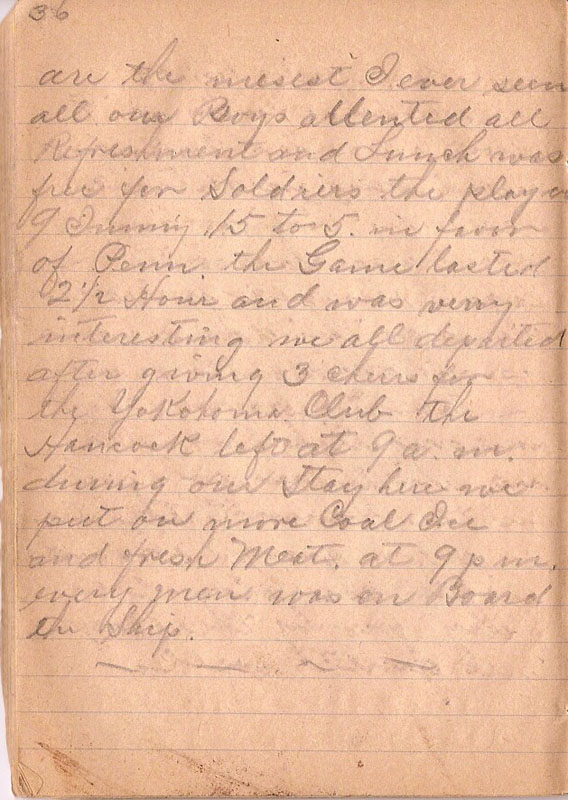 36
are the nicest I ever seen
all our Boys attented all
Refreshment and Lunch was
free for Soldiers the played
9 Inning 15 to 5. in favor
of Penn. the Game lasted
2 1/2 Hour and was verry
interesting we all departed
after giving 3 cheers for
the Yokohoma Club the
Hancock left at 9 a. m.
during our Stay here we
put on more Coal Ice
and fresh Meat. at 9 p m.
every man was on Board
the Ship.